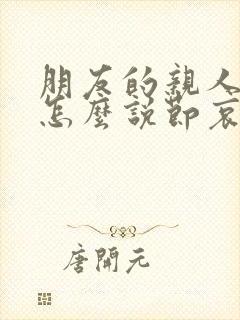 朋友的親人
怎麼說節哀
唐開元